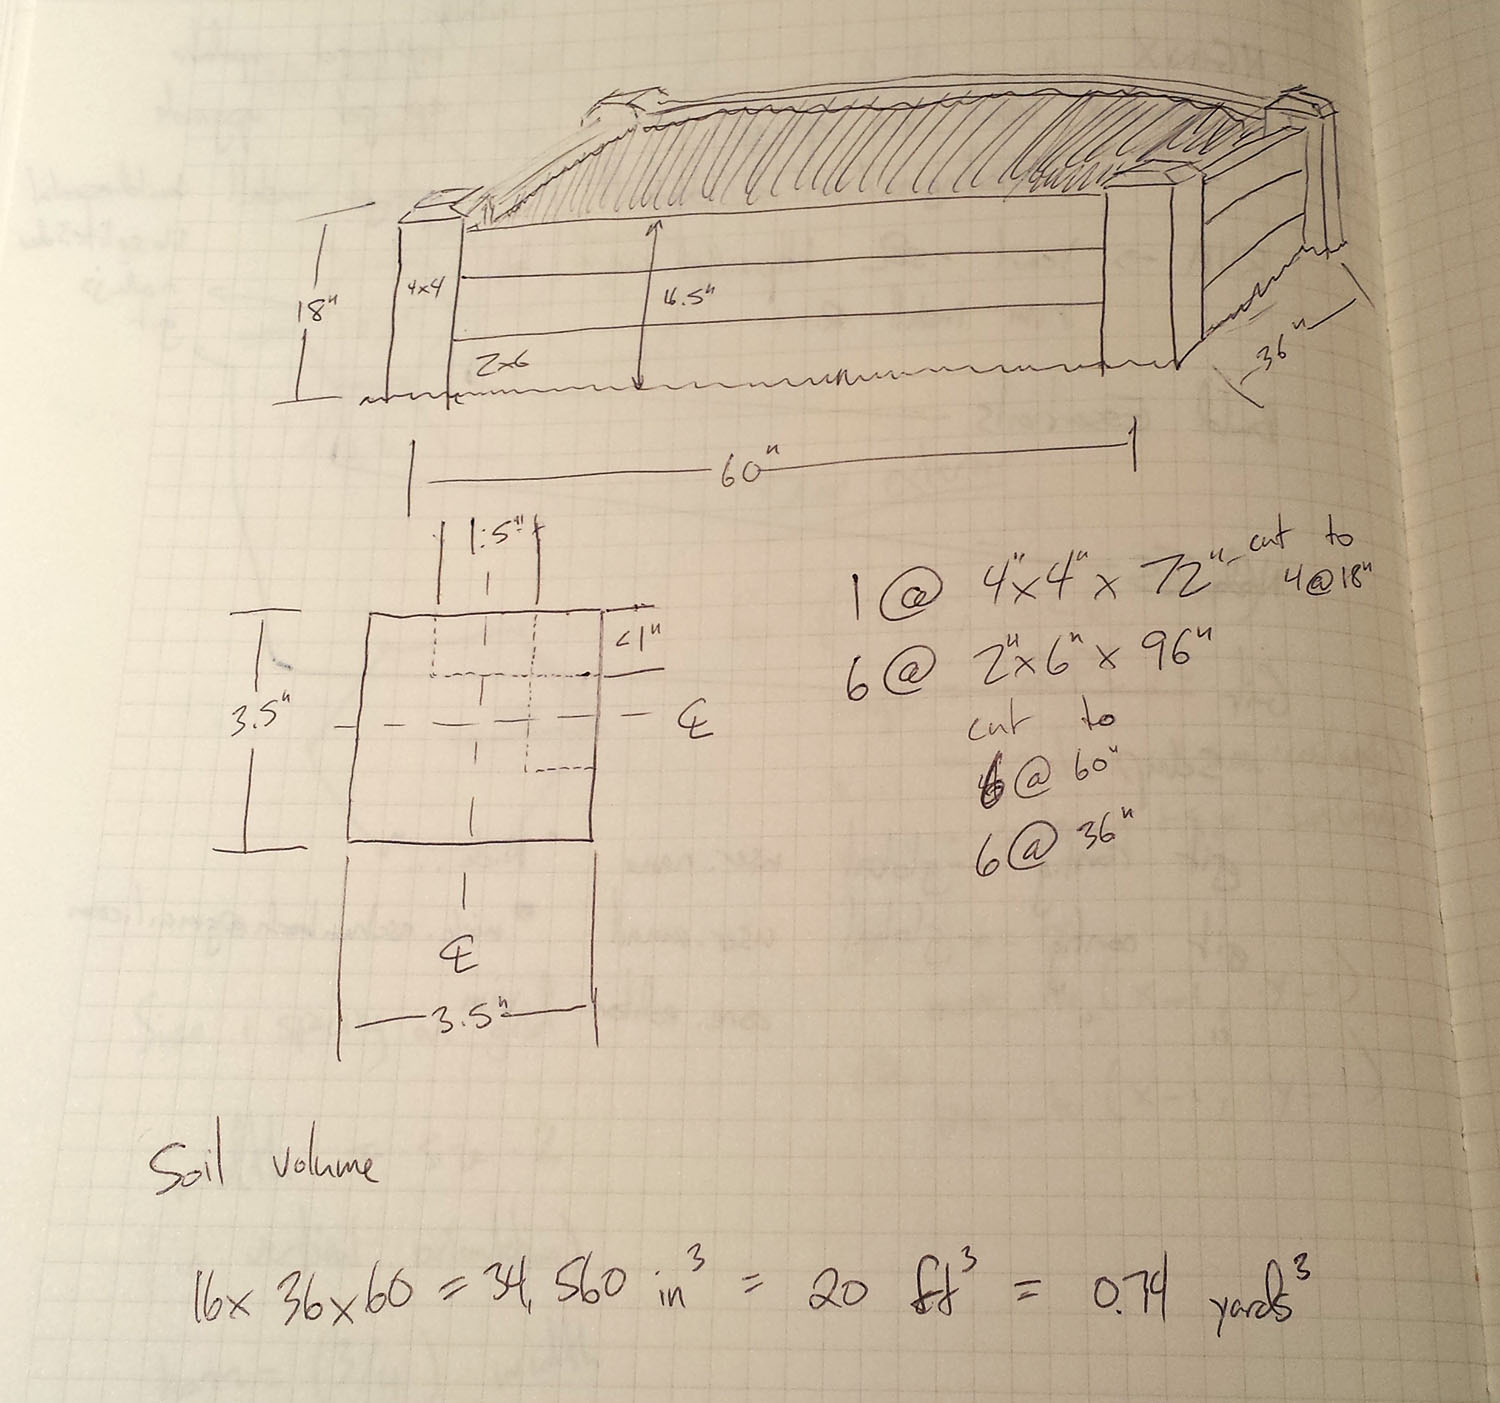 18"
4x4
16.5"
2x6
36"
60"
1.5"
<1"
3.5"
℄
℄
3.5"
1 @ 4"x4" x 72" - cut to
4@18"
6 @ 2"x6" x 96"
cut to
6 @ 60"
6 @ 36"
Soil volume
16x 36x60 = 34,560 in³ = 20 ft³ = 0.74 yards³